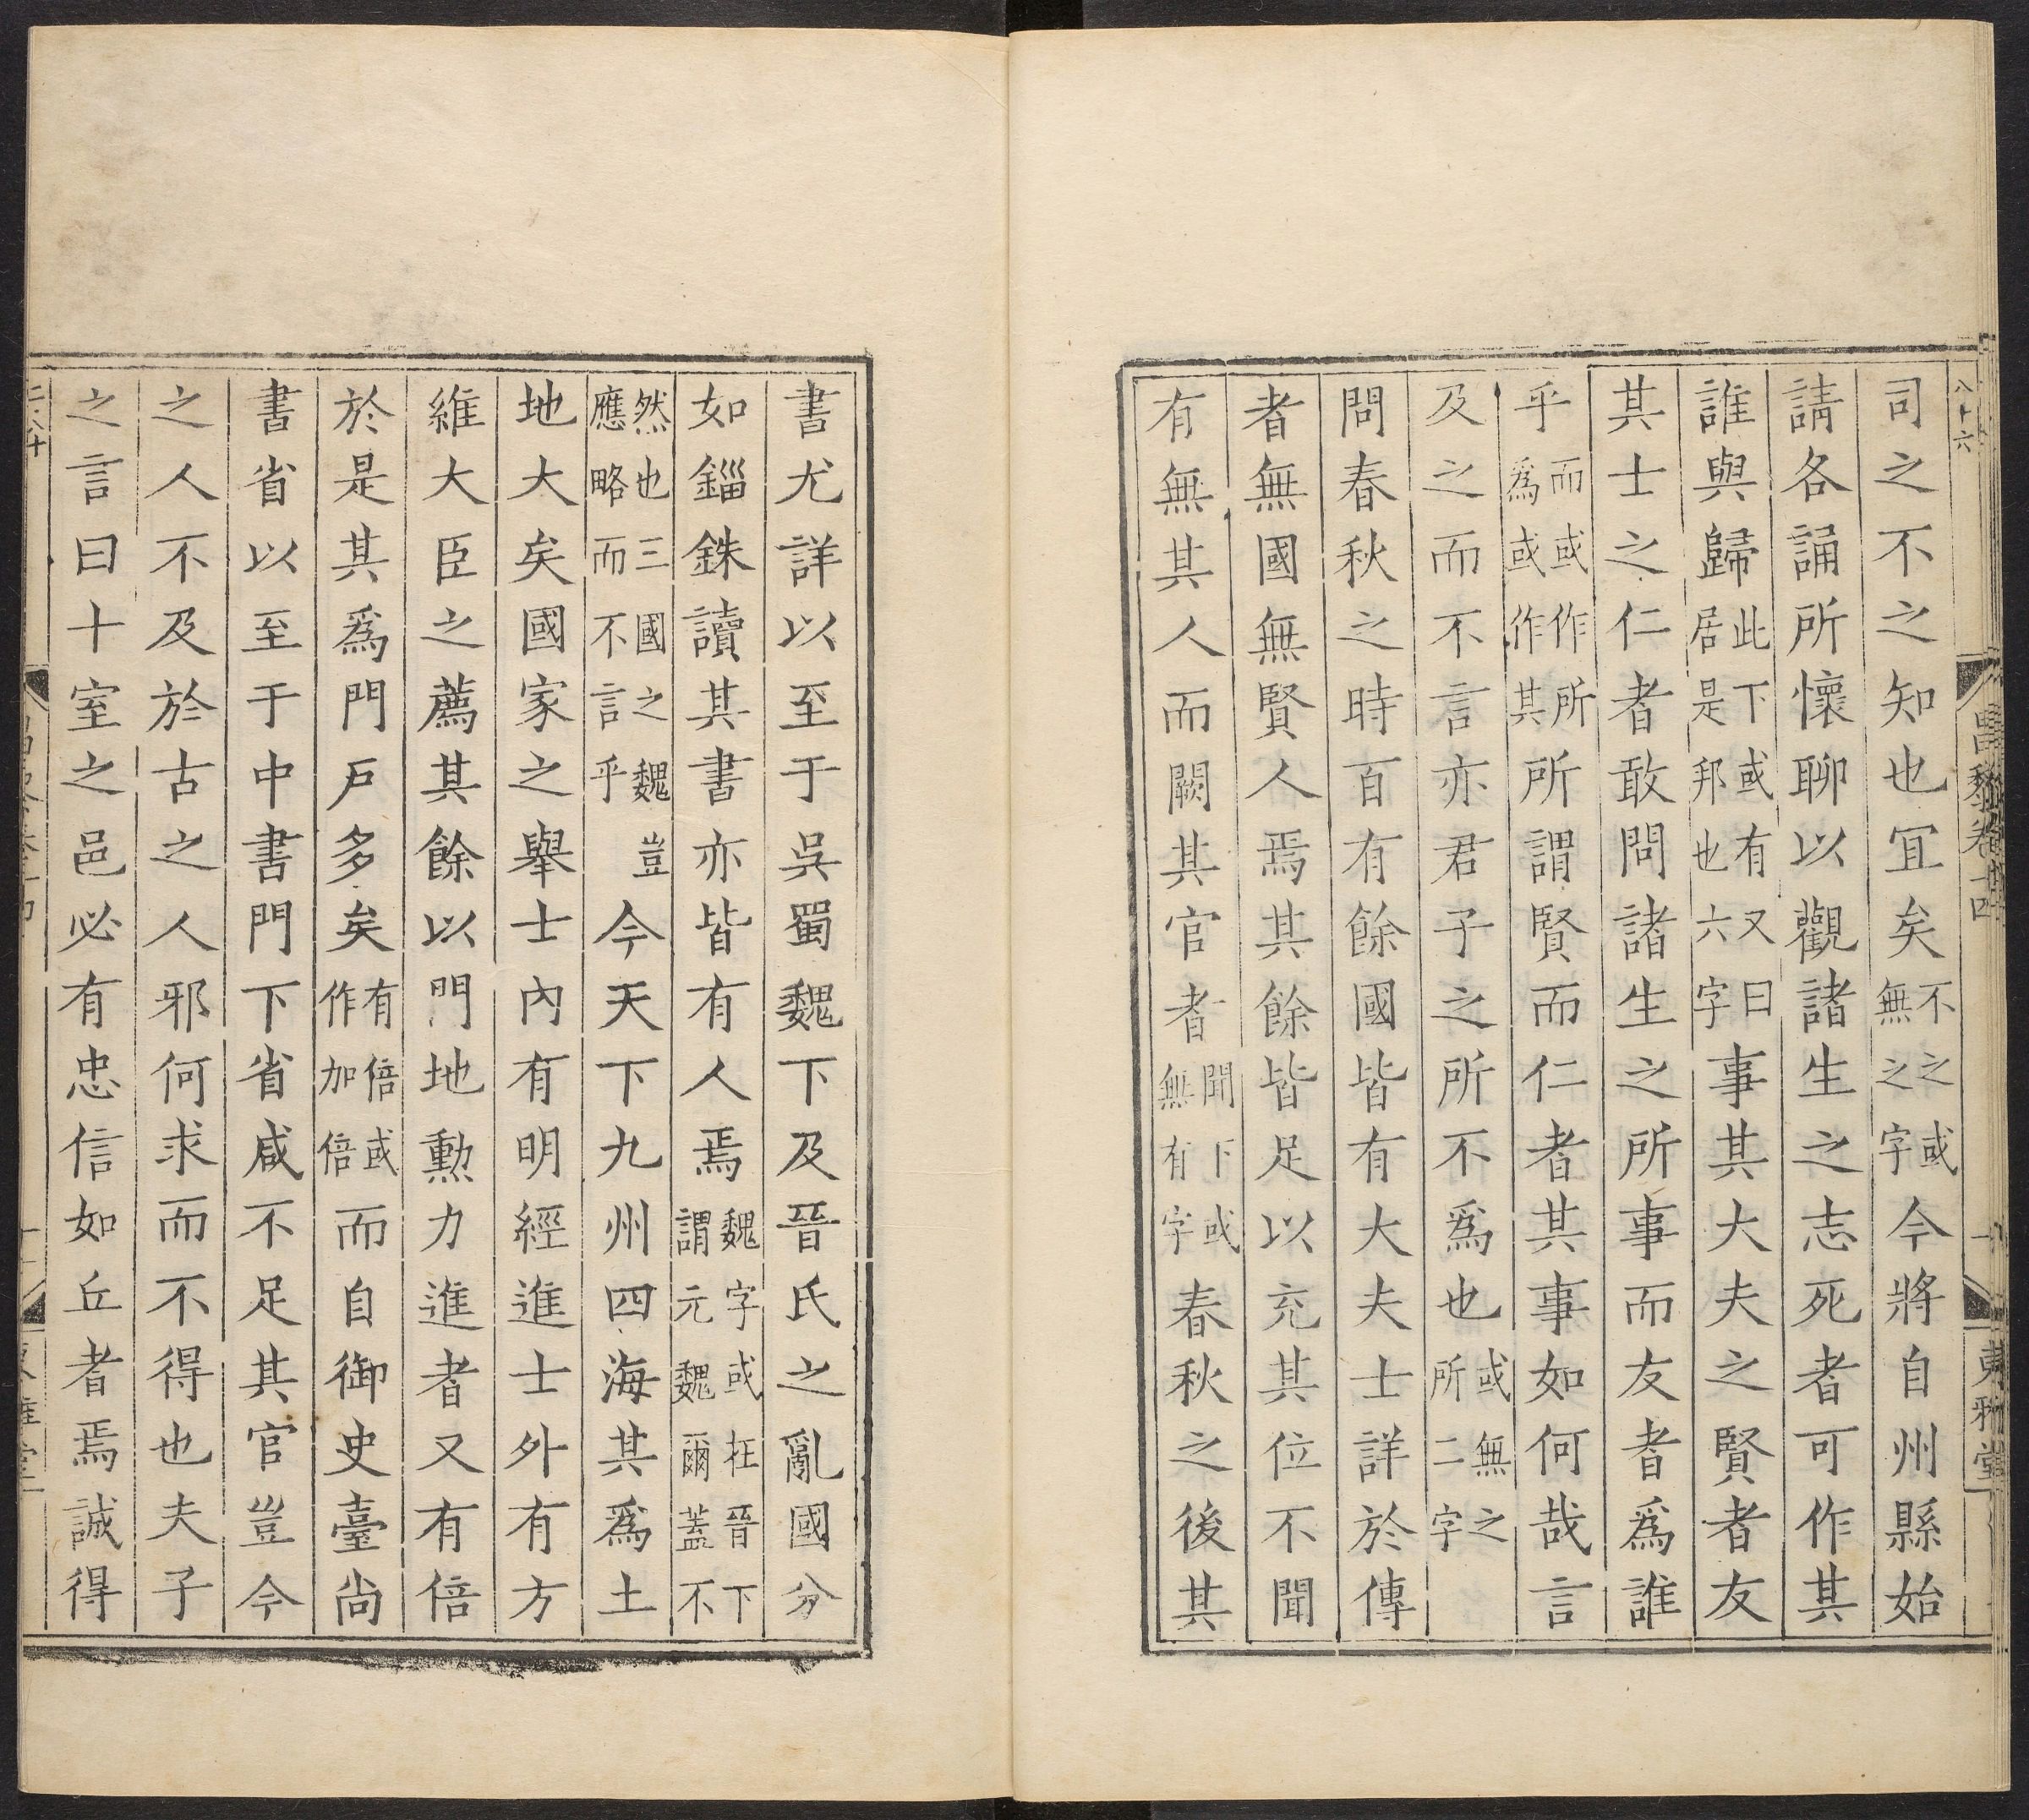 八十六
昌黎卷十四
東雅堂
司之不之知也冝矣不之或無之之字今將自州縣始
請各誦所懷聊以觀諸生之志死者可作其
誰與歸此下或有又曰居是邦也六字事其大夫之賢者友
其士之仁者敢問諸生之所事而友者爲誰
乎而或作所爲或作其所謂賢而仁者其事如何哉言
及之而不言亦君子之所不爲也或無之所二字
問春秋之時百有餘國皆有大夫士詳於傳
者無國無賢人焉其餘皆足以充其位不聞
有無其人而闕其官者聞下或無有字春秋之後其
書尤詳以至于吳蜀魏下及晉氏之亂國分
如錙銖讀其書亦皆有人焉魏字或在晉下謂元魏爾蓋不
然也三國之魏豈應略而不言乎今天下九州四海其爲土
地大矣國家之舉士內有明經進士外有方
維大臣之薦其餘以門地勳力進者又有倍
於是其爲門戶多矣有倍或作加倍而自御史臺尚
書省以至于中書門下省咸不足其官豈今
之人不及於古之人邪何求而不得也夫子
之言曰十室之邑必有忠信如丘者焉誠得